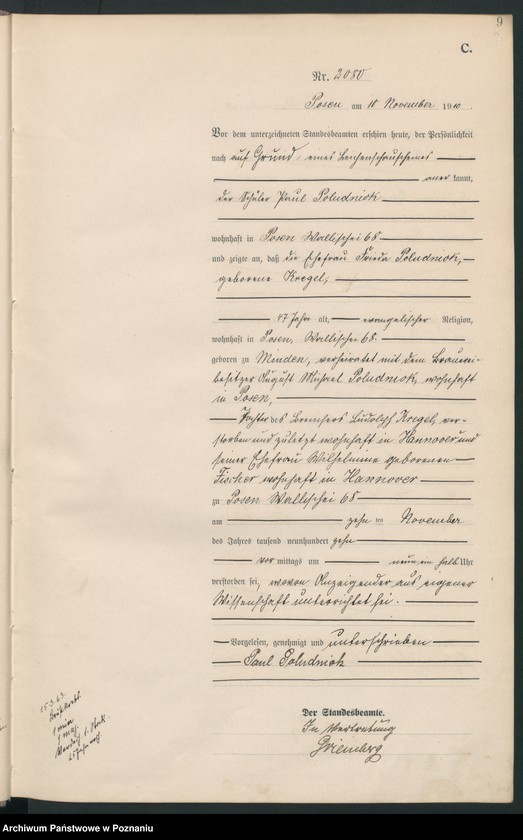 9
C.
Nr. 2080
Posen am 10 November 1910.
Vor dem unterzeichneten Standesbeamten erschien heute, der Persönlichkeit
nach auf Grund eines Leichenschauscheines
aner kannt,
der Schüler Paul Poludniok
wohnhaft in Posen Wallischei 68
und zeigte an, daß die Ehefrau Frieda Poludniok,
geborene Kregel,
47 Jahre alt, evangelischer Religion,
wohnhaft in Posen, Wallischei 68
geboren zu Minden, verheiratet mit dem Brauerei-
besitzer August Michael Poludniok, wohnhaft
in Posen,
Tochter des Bremsers Ludolph Kregel, ver-
storben und zuletzt wohnhaft in Hannover und
seiner Ehefrau Wilhelmine geborenen
Fischer wohnhaft in Hannover
zu Posen Wallischei 68
am zehn ten November
des Jahres tausend neunhundert zehn
vor mittags um neun ein halb Uhr
verstorben sei, wovon Anzeigender aus eigener
Wissenschaft unterrichtet sei.
Vorgelesen, genehmigt und unterschrieben
Paul Poludniok
Der Standesbeamte.
In Vertretung
15.3.63.
Archiwum Państwowe w Poznaniu